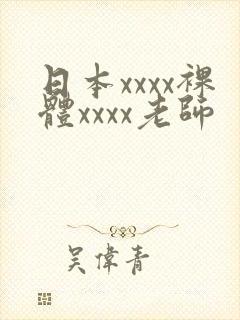 日本xxxx裸
體xxxx老師
吴偉青